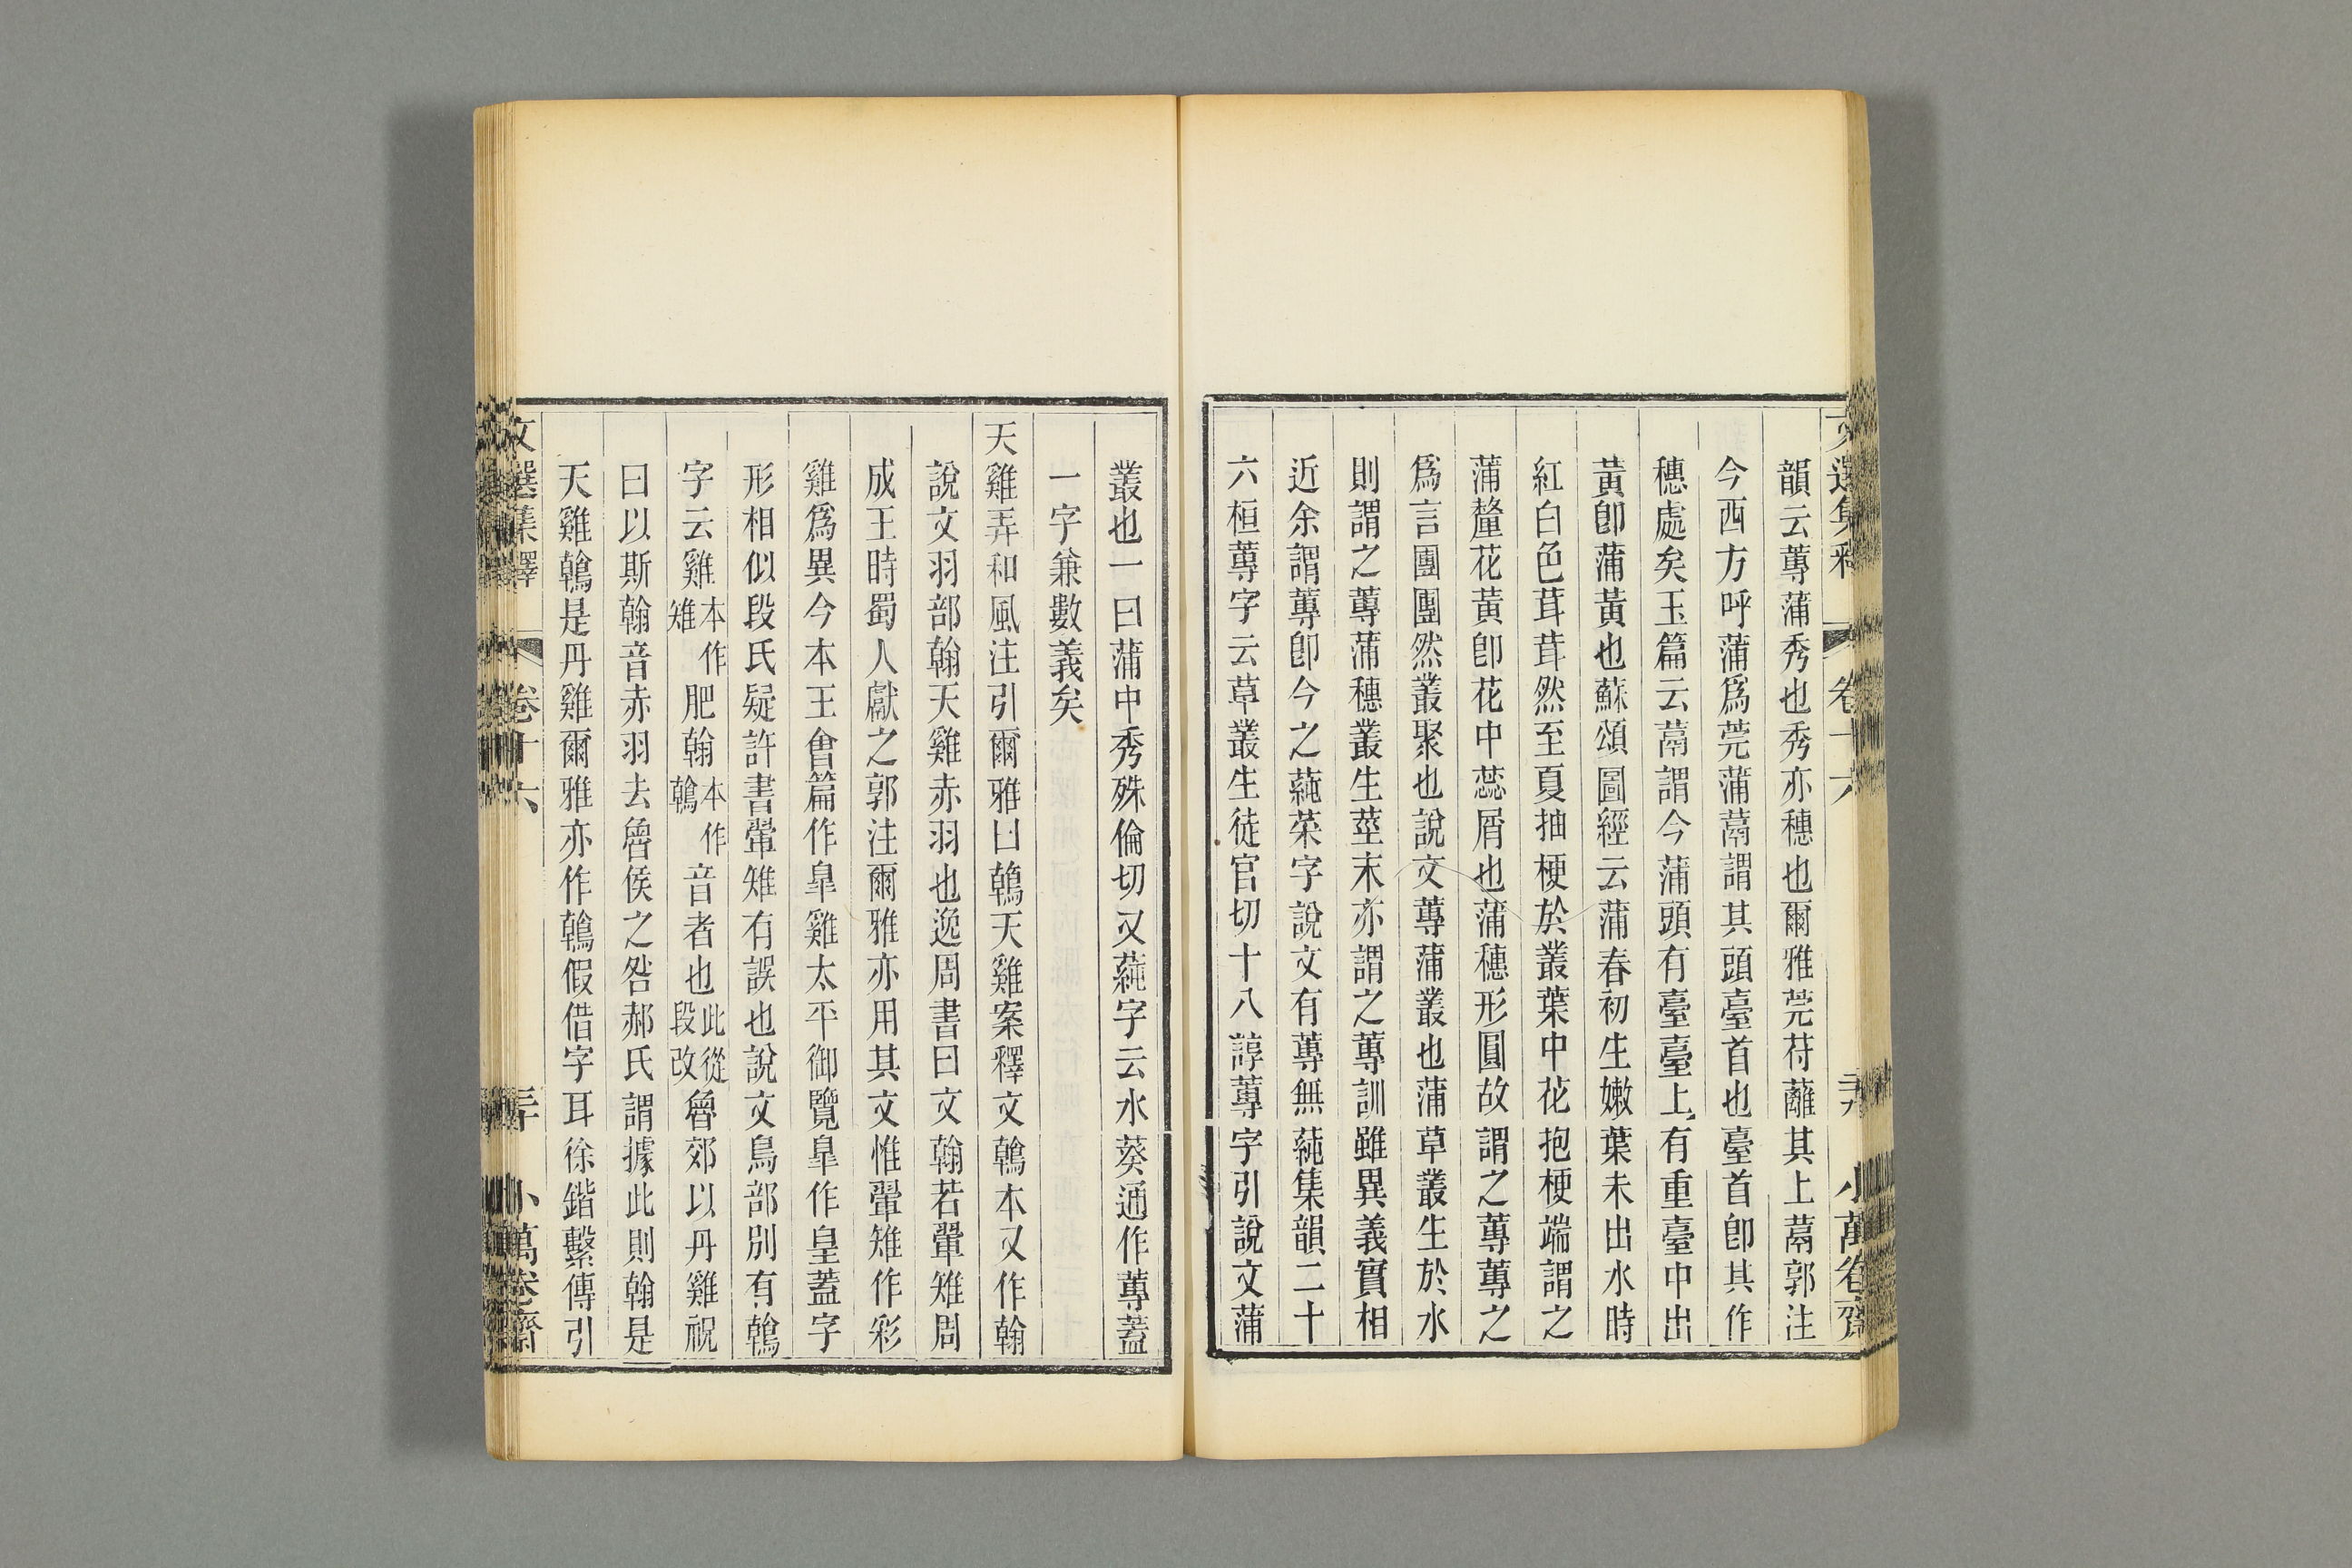 韻云蓴蒲秀也秀亦穗也爾雅莞苻蘺其上蒚郭注
今西方呼蒲爲莞蒲蒚謂其頭臺首也臺首卽其作
穗處矣玉篇云蒚謂今蒲頭有臺臺上有重臺中出
黃卽蒲黃也蘇頌圖經云蒲春初生嫩葉未出水時
紅白色茸茸然至夏抽梗於叢葉中花抱梗端謂之
蒲釐花黃卽花中蕊屑也蒲穗形圓故謂之蓴蓴之
爲言團團然叢聚也說文蓴蒲叢也蒲草叢生於水
則謂之蓴蒲穗叢生莖末亦謂之蓴訓雖異義實相
近余謂蓴卽今之蒓菜字說文有蓴無蒓集韻二十
六桓蓴字云草叢生徒官切十八諄蓴字引說文蒲
叢也一曰蒲中秀殊倫切又蒓字云水葵通作蓴蓋
一字兼數義矣
天雞弄和風注引爾雅曰鶾天雞案釋文鶾本又作翰
說文羽部翰天雞赤羽也逸周書曰文翰若翬雉周
成王時蜀人獻之郭注爾雅亦用其文惟翬雉作彩
雞爲異今本王會篇作皐雞太平御覽皐作皇蓋字
形相似段氏疑許書翬雉有誤也說文鳥部別有鶾
字云雞本作雉肥翰本作鶾音者也此從段改魯郊以丹雞祝
曰以斯翰音赤羽去魯侯之咎郝氏謂據此則翰是
天雞鶾是丹雞爾雅亦作鶾假借字耳徐鍇繫傳引
文選集釋
卷十六
三十
小萬卷齋